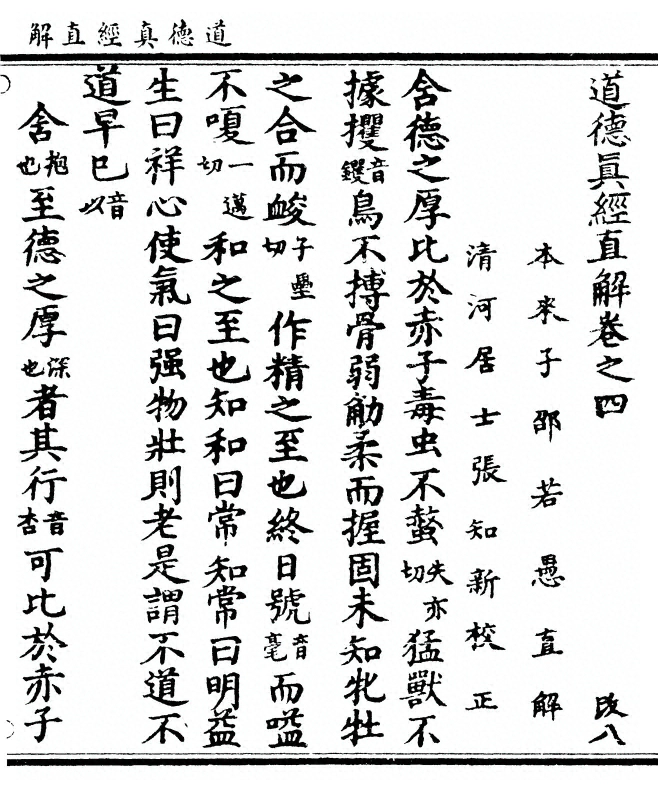 道德真經直解
道德眞經直解卷之四　改八
本來子邵若愚直解
清河居士張知新校正
含德之厚比於赤子毒虫不螫失亦切猛獸不
據攫音钁鳥不搏骨弱觔柔而握固未知牝牡
之合而䘒子壘切作精之至也終日號音毫而嗌
不嗄一邁切和之至也知和曰常知常曰明益
生曰祥心使氣曰强物壯則老是謂不道不
道早巳音以
含抱也至德之厚深也者其行音杏可比於赤子